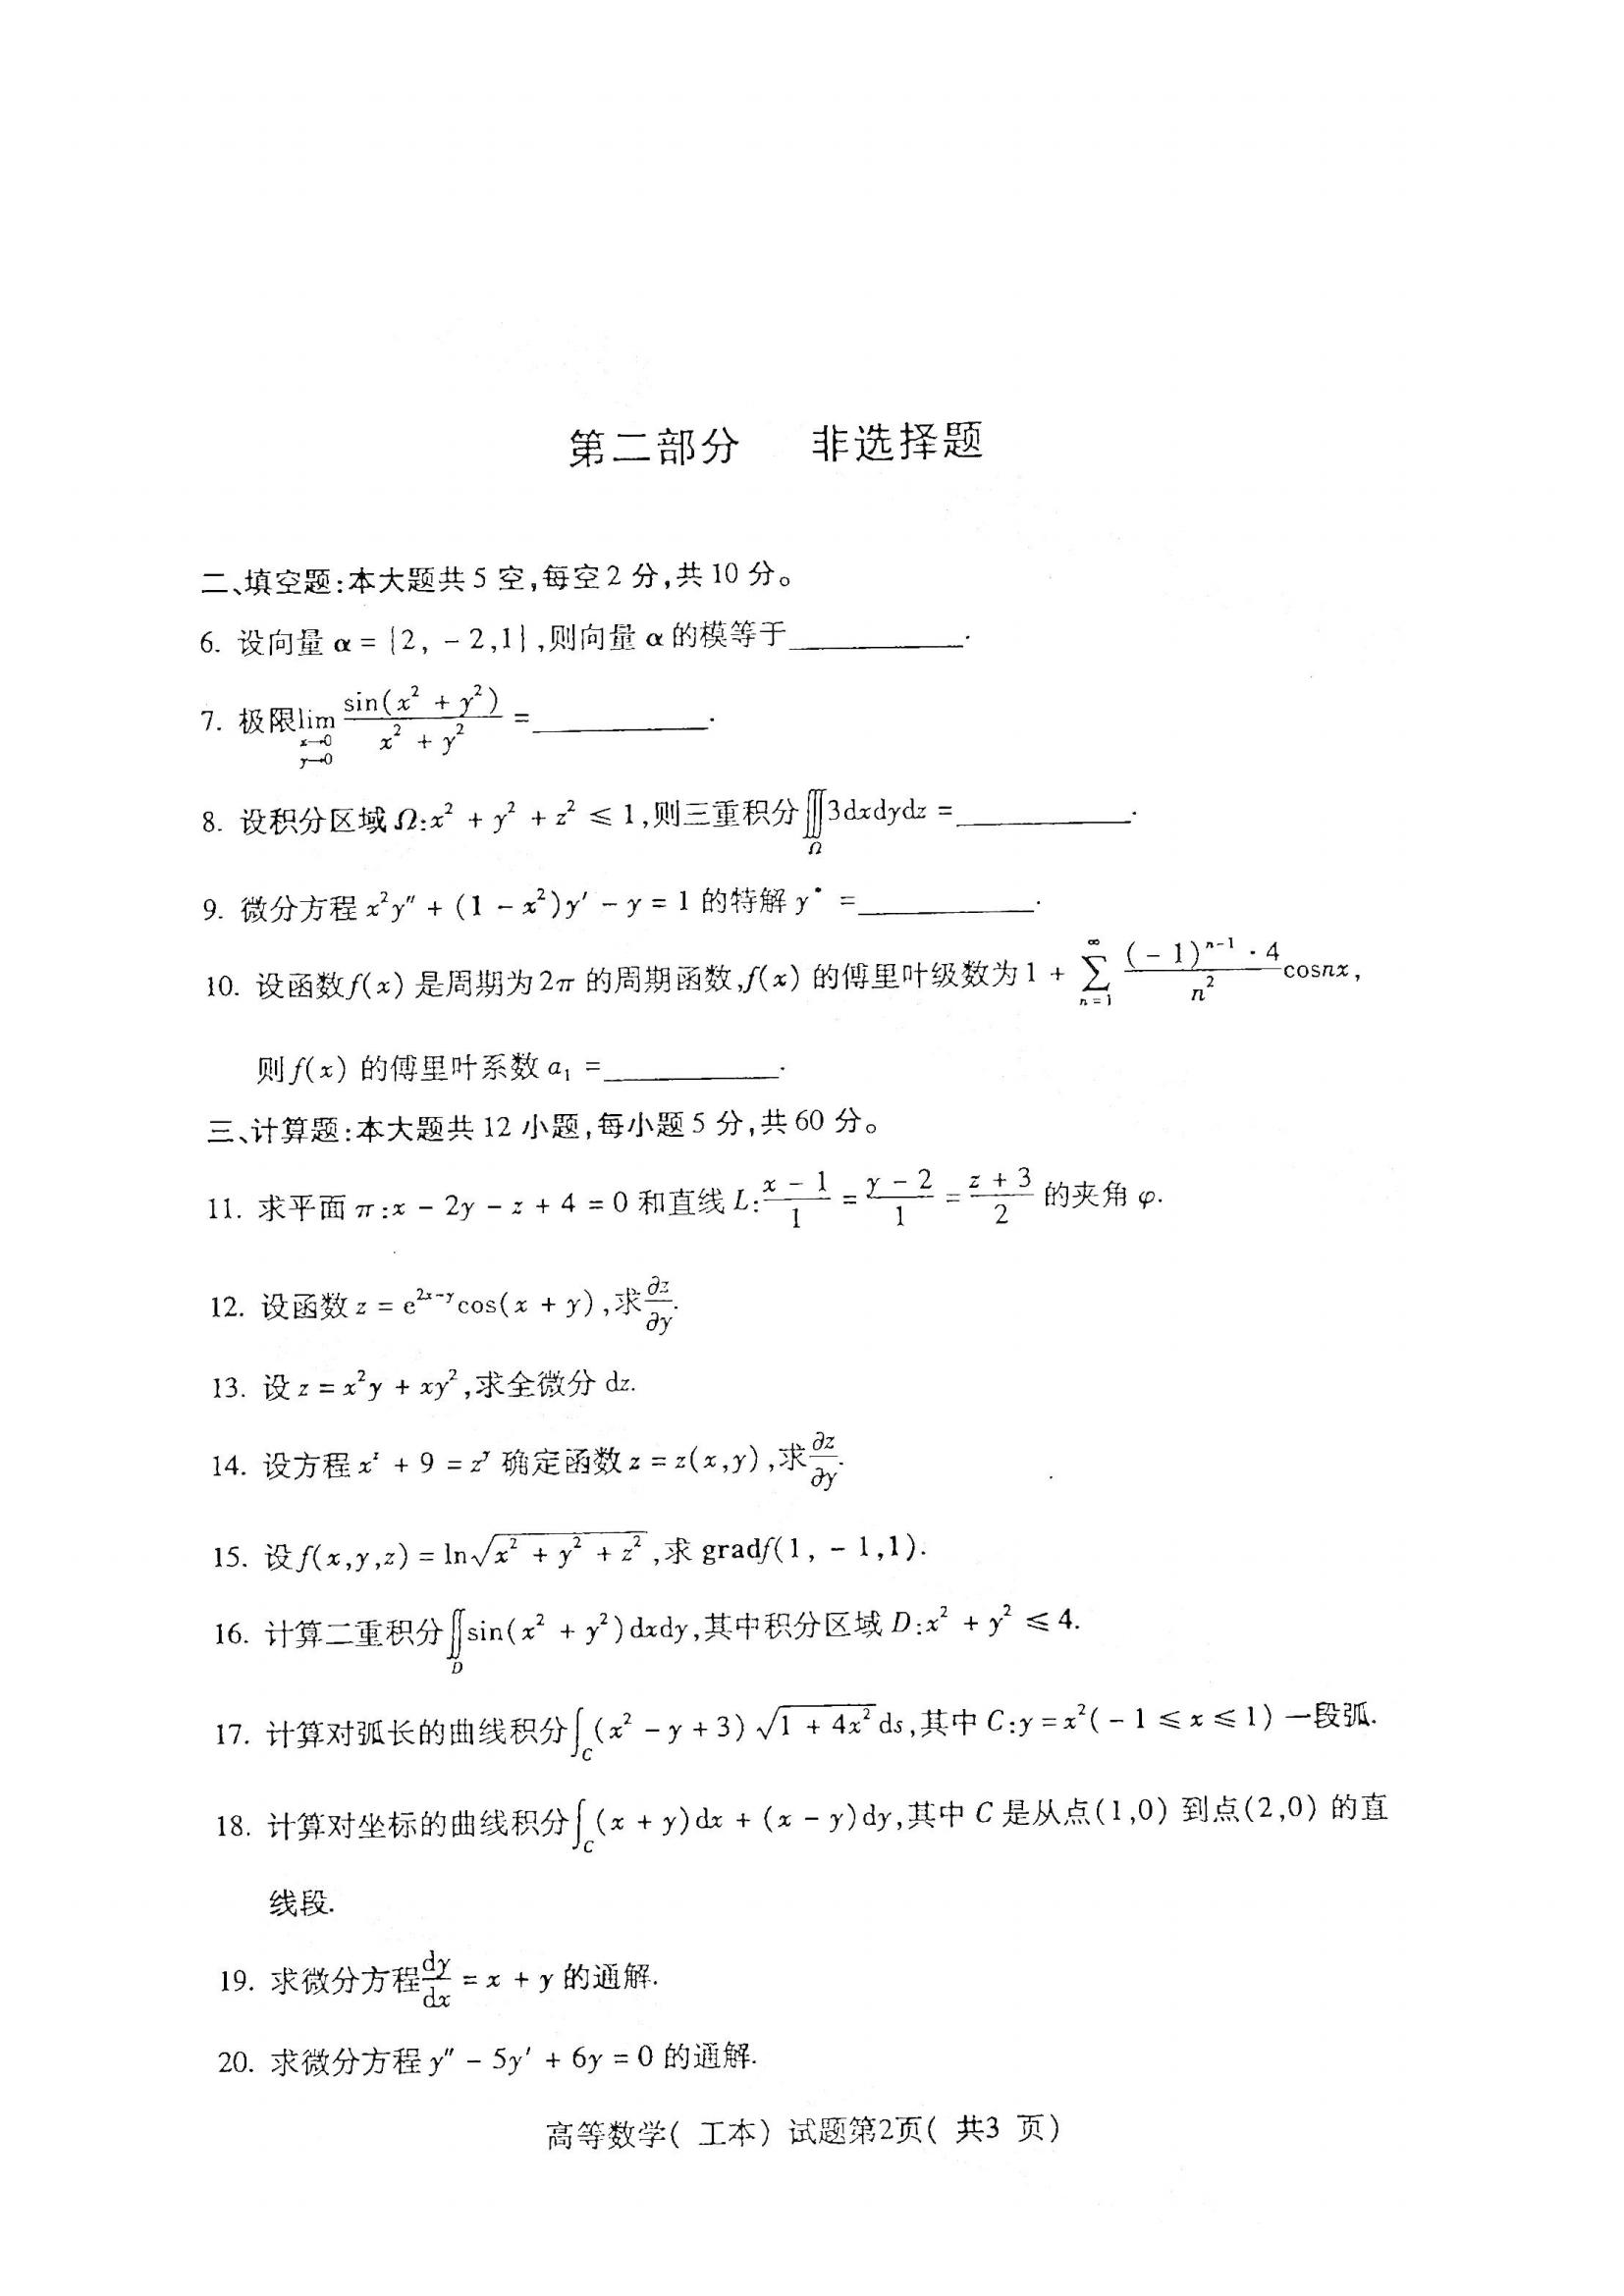 第二部分 非选择题
二、填空题:本大题共5空,每空2分,共10分。
6. 设向量 α = {2, -2,1},则向量 α 的模等于________.
7. 极限 $\lim_{\substack{x\to 0\\ y\to 0}}\frac{\sin(x^2+y^2)}{x^2+y^2}$ = ________.
8. 设积分区域 Ω:$x^2+y^2+z^2\leqslant 1$,则三重积分 $\iiint_{\Omega}3dxdydz$ = ________.
9. 微分方程 $x^2y''+(1-x^2)y'-y=1$ 的特解 $y^*$ = ________.
10. 设函数 f(x) 是周期为 2π 的周期函数,f(x) 的傅里叶级数为 $1+\sum_{n=1}^{\infty}\frac{(-1)^{n-1}\cdot 4}{n^2}\cos nx$,
则 f(x) 的傅里叶系数 $a_1$ = ________.
三、计算题:本大题共12小题,每小题5分,共60分。
11. 求平面 π:x - 2y - z + 4 = 0 和直线 L:$\frac{x-1}{1}=\frac{y-2}{1}=\frac{z+3}{2}$ 的夹角 φ.
12. 设函数 $z=e^{2x-y}\cos(x+y)$,求 $\frac{\partial z}{\partial y}$.
13. 设 $z=x^2y+xy^2$,求全微分 dz.
14. 设方程 $x^z+9=z^y$ 确定函数 z = z(x,y),求 $\frac{\partial z}{\partial y}$.
15. 设 $f(x,y,z)=\ln\sqrt{x^2+y^2+z^2}$,求 gradf(1, -1,1).
16. 计算二重积分 $\iint_{D}\sin(x^2+y^2)dxdy$,其中积分区域 D:$x^2+y^2\leqslant 4$.
17. 计算对弧长的曲线积分 $\int_C(x^2-y+3)\sqrt{1+4x^2}ds$,其中 C:$y=x^2(-1\leqslant x\leqslant 1)$ 一段弧.
18. 计算对坐标的曲线积分 $\int_C(x+y)dx+(x-y)dy$,其中 C 是从点(1,0) 到点(2,0) 的直
线段.
19. 求微分方程 $\frac{dy}{dx}=x+y$ 的通解.
20. 求微分方程 $y''-5y'+6y=0$ 的通解.
高等数学( 工本) 试题第2页( 共3 页)